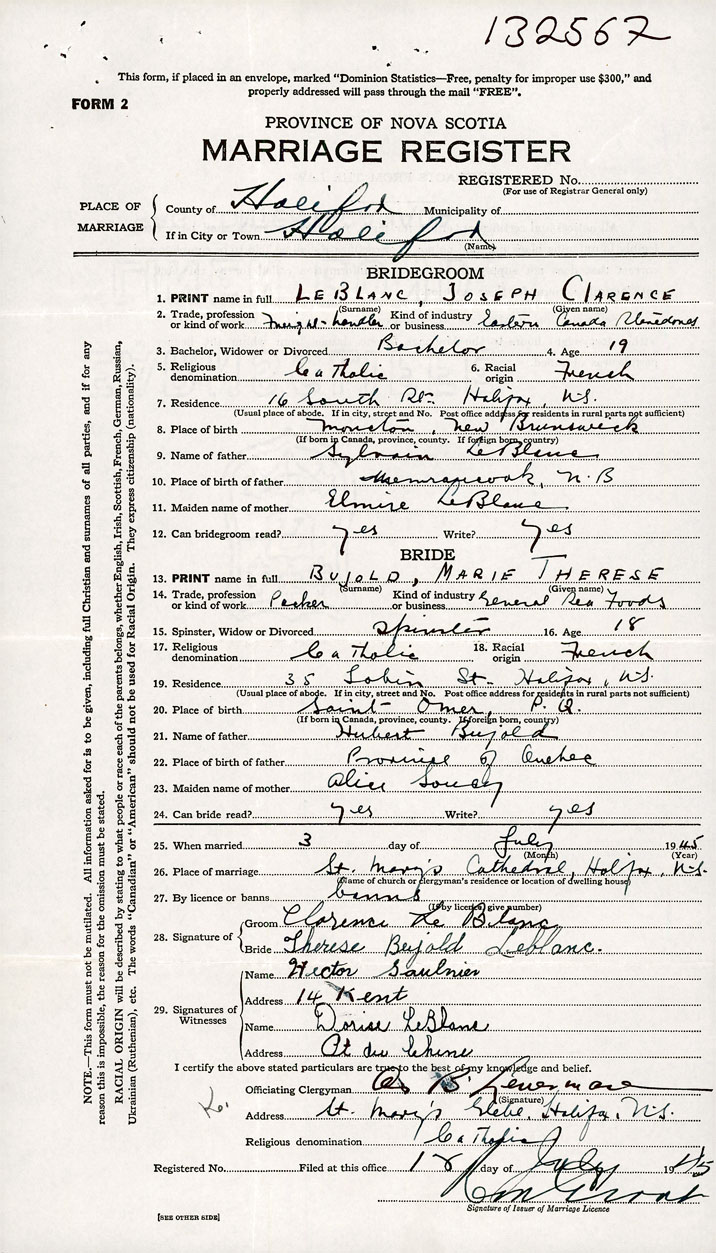 132567
This form, if placed in an envelope, marked "Dominion Statistics—Free, penalty for improper use $300," and
properly addressed will pass through the mail "FREE".
FORM 2
PROVINCE OF NOVA SCOTIA
MARRIAGE REGISTER
REGISTERED No.
(For use of Registrar General only)
PLACE OF MARRIAGE
County of Halifax Municipality of
If in City or Town Halifax
(Name)
BRIDEGROOM
1. PRINT name in full LeBLANC, JOSEPH CLARENCE
(Surname) (Given name)
2. Trade, profession or kind of work Freight-handler Kind of industry or business Eastern Canada
3. Bachelor, Widower or Divorced Bachelor 4. Age 19
5. Religious denomination Catholic 6. Racial origin French
7. Residence 16 South St. Halifax, N.S.
(Usual place of abode. If in city, street and No. Post office address for residents in rural parts not sufficient)
8. Place of birth Moncton, New Brunswick
(If born in Canada, province, county. If foreign born, country)
9. Name of father Sylvain LeBlanc
10. Place of birth of father Memramcook, N.B
11. Maiden name of mother Elmire LeBlanc
12. Can bridegroom read? yes Write? yes
BRIDE
13. PRINT name in full BUJOLD, MARIE THERESE
(Surname) (Given name)
14. Trade, profession or kind of work Packer Kind of industry or business General Sea Foods
15. Spinster, Widow or Divorced Spinster 16. Age 18
17. Religious denomination Catholic 18. Racial origin French
19. Residence 35 St. Halifax, N.S.
(Usual place of abode. If in city, street and No. Post office address for residents in rural parts not sufficient)
20. Place of birth Saint Omer, P.Q.
(If born in Canada, province, county. If foreign born, country)
21. Name of father Hubert Bujold
22. Place of birth of father Province of Quebec
23. Maiden name of mother Alice Soucy
24. Can bride read? yes Write? yes
25. When married 3 day of July 1945
(Month) (Year)
26. Place of marriage St. Mary's Cathedral, Halifax, N.S.
(Name of church or clergyman's residence or location of dwelling house)
27. By licence or banns banns
(If by licence, give number)
28. Signature of Groom Clarence Le Blanc
Bride Therese Bujold Leblanc.
29. Signatures of Witnesses
Name Hector Saulnier
Address 14 Kent
Name Dorise LeBlanc
Address Pt du Chene
I certify the above stated particulars are true to the best of my knowledge and belief.
Officiating Clergyman
(Signature)
Address St. Mary's Glebe, Halifax, N.S.
Religious denomination Catholic
Registered No. Filed at this office 18 day of July 1945
Signature of Issuer of Marriage Licence
[SEE OTHER SIDE]
NOTE.—This form must not be mutilated. All information asked for is to be given, including full Christian and surnames of all parties, and if for any
reason this is impossible, the reason for the omission must be stated.
RACIAL ORIGIN will be described by stating to what people or race each of the parents belongs, whether English, Irish, Scottish, French, German, Russian,
Ukrainian (Ruthenian), etc. The words "Canadian" or "American" should not be used for Racial Origin. They express citizenship (nationality).